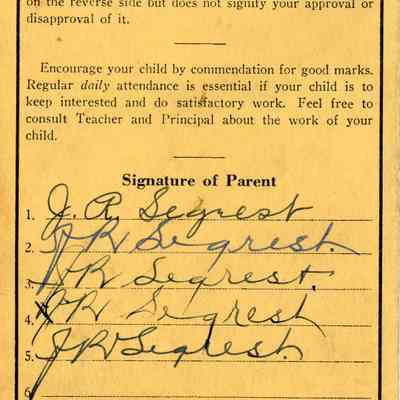 on the reverse side but does not signify your approval or
disapproval of it.
Encourage your child by commendation for good marks.
Regular daily attendance is essential if your child is to
keep interested and do satisfactory work. Feel free to
consult Teacher and Principal about the work of your
child.
Signature of Parent
1. J. R. Segrest
2. J R Segrest.
3. J R Segrest.
4. J R Segrest
5. J R Segrest.
6.